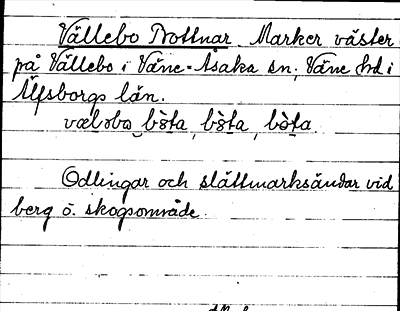 Vällebo Bottnar. Marker väster
på Vällebo i Väne-Åsaka sn, Väne hd i
Älfsborgs län.
Odlingar och slåttmarksändar vid
berg o. skogsområde.